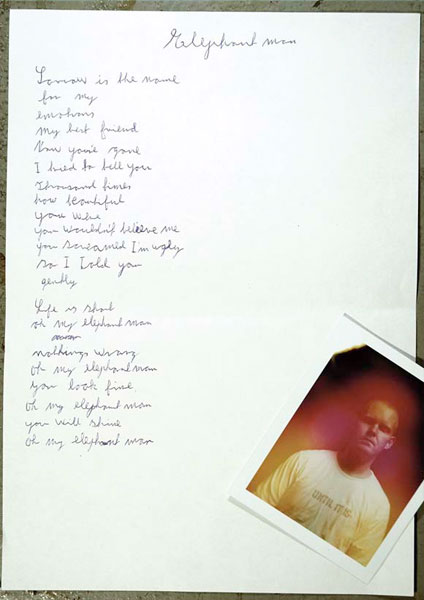 Elephant man
Sorrow is the name
for my
emotions
my best friend
Now you're gone
I tried to tell you
Thousand times
how beautiful
you were
you wouldn't believe me
you screamed I'm ugly
so I told you
gently
Life is short
oh my elephant man
nothings wrong
oh my elephant man
you look fine
oh my elephant man
you will shine
oh my elephant man
UNTIL IT IS